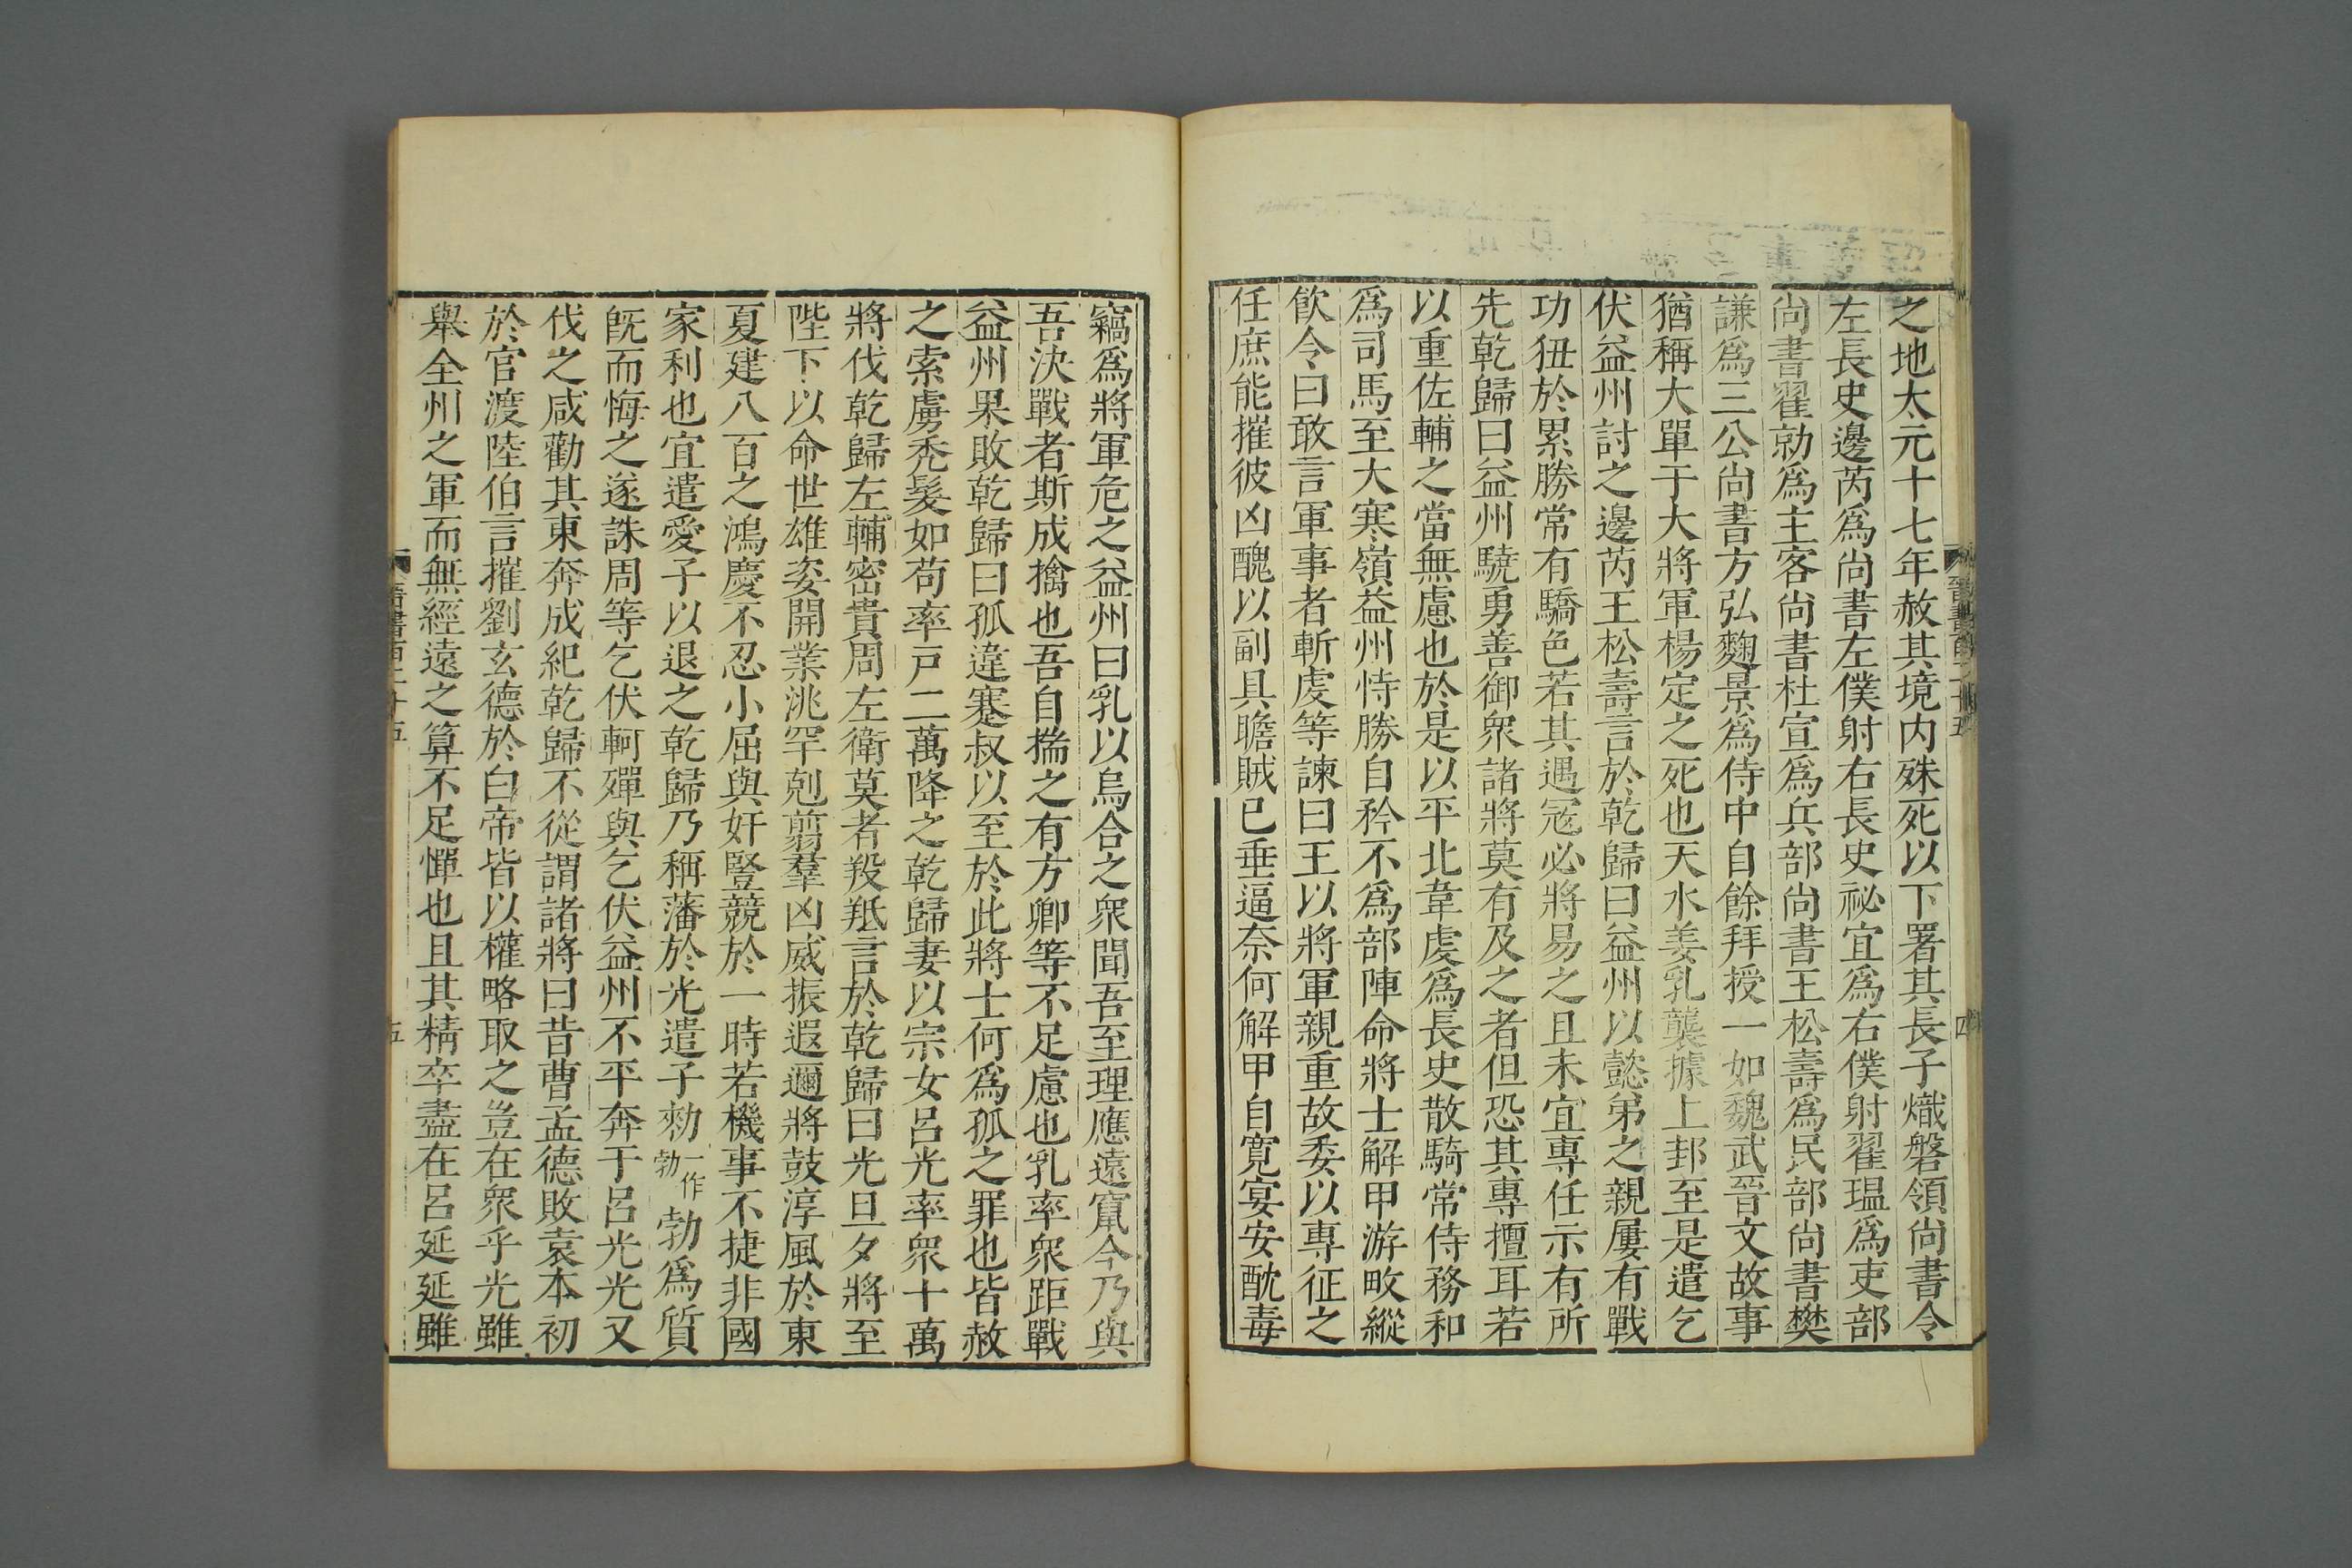 之地太元十七年赦其境内殊死以下署其長子熾磐領尚書令
左長史邊芮爲尚書左僕射右長史祕宜爲右僕射翟瑥爲吏部
尚書翟勍爲主客尚書杜宣爲兵部尚書王松壽爲民部尚書樊
謙爲三公尚書方弘麴景爲侍中自餘拜授一如魏武晉文故事
猶稱大單于大將軍楊定之死也天水姜乳襲據上邽至是遣乞
伏益州討之邊芮王松壽言於乾歸曰益州以懿弟之親屢有戰
功狃於累勝常有驕色若其遇寇必將易之且未宜專任示有所
先乾歸曰益州驍勇善御衆諸將莫有及之者但恐其專擅耳若
以重佐輔之當無慮也於是以平北韋虔爲長史散騎常侍務和
爲司馬至大寒嶺益州恃勝自矜不爲部陣命將士解甲游畋縱
飲令曰敢言軍事者斬虔等諫曰王以將軍親重故委以專征之
任庶能摧彼凶醜以副具瞻賊已垂逼奈何解甲自寬宴安酖毒
竊爲將軍危之益州曰乳以烏合之衆聞吾至理應遠竄今乃與
吾決戰者斯成擒也吾自揣之有方卿等不足慮也乳率衆距戰
益州果敗乾歸曰孤違蹇叔以至於此將士何爲孤之罪也皆赦
之索虜禿髮如苟率戸二萬降之乾歸妻以宗女呂光率衆十萬
將伐乾歸左輔密貴周左衛莫者羖羝言於乾歸曰光旦夕將至
陛下以命世雄姿開業洮罕剋翦羣凶威振遐邇將鼓淳風於東
夏建八百之鴻慶不忍小屈與奸豎競於一時若機事不捷非國
家利也宜遣愛子以退之乾歸乃稱藩於光遣子勑一作勃勃爲質
既而悔之遂誅周等乞伏軻殫與乞伏益州不平奔于呂光光又
伐之咸勸其東奔成紀乾歸不從謂諸將曰昔曹孟德敗袁本初
於官渡陸伯言摧劉玄德於白帝皆以權略取之豈在衆乎光雖
舉全州之軍而無經遠之算不足憚也且其精卒盡在呂延延雖